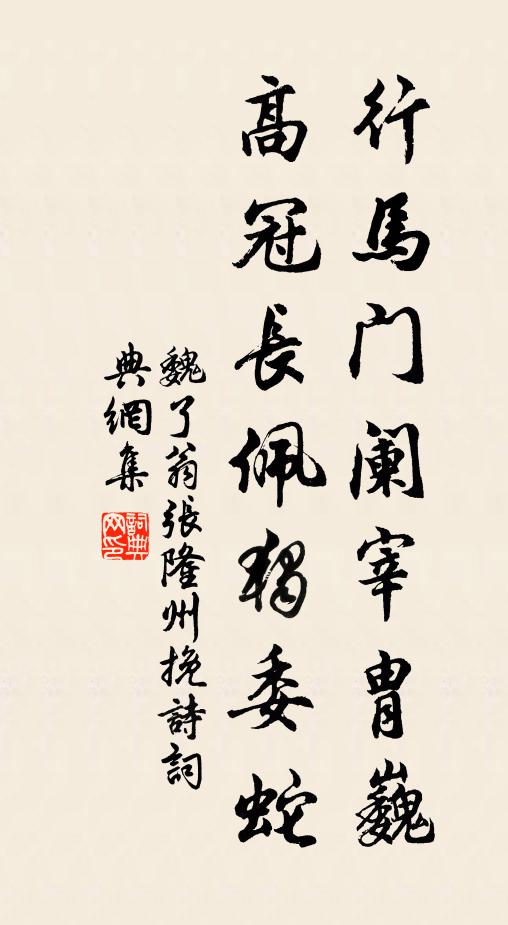 行馬門闌宰胄巍
高冠長佩獨委蛇
魏了翁張隆州挽詩詞
典網集
詞典
网印